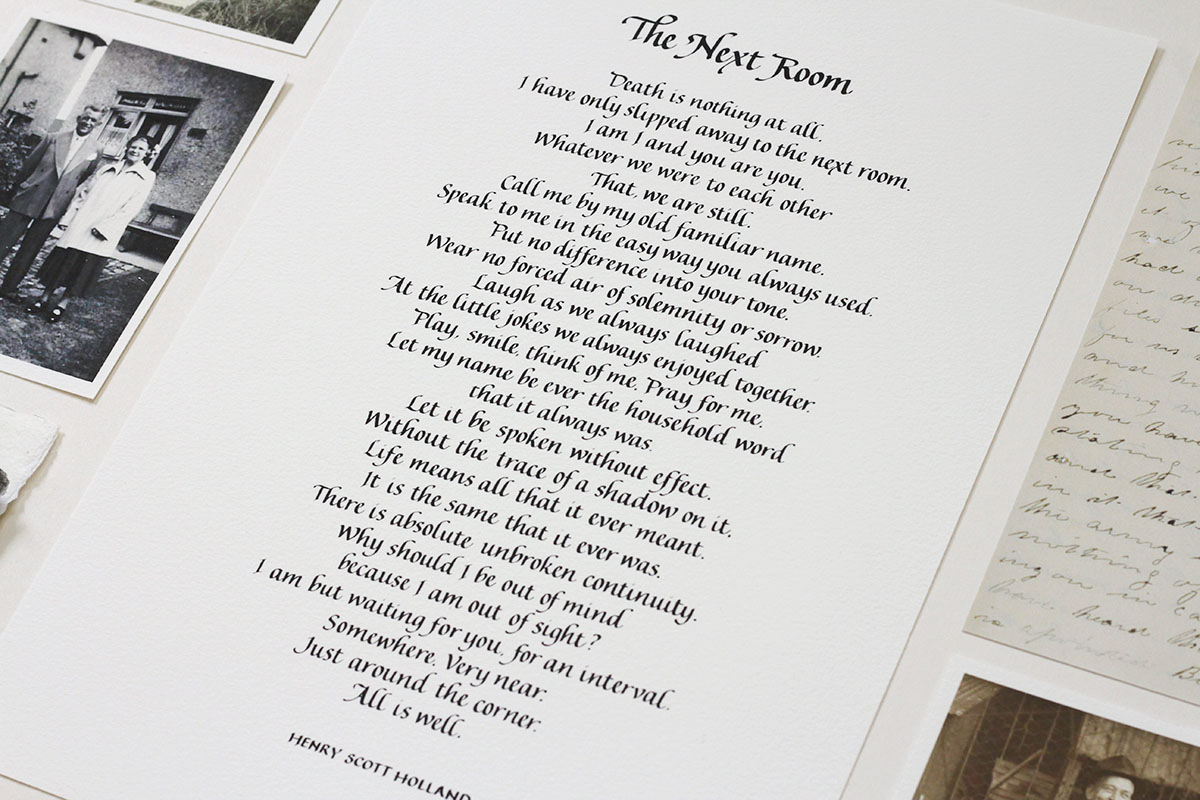 The Next Room
Death is nothing at all.
I have only slipped away to the next room.
I am I and you are you.
Whatever we were to each other
That, we are still.
Call me by my old familiar name.
Speak to me in the easy way you always used.
Put no difference into your tone.
Wear no forced air of solemnity or sorrow.
Laugh as we always laughed
At the little jokes we always enjoyed together.
Play, smile, think of me. Pray for me.
Let my name be ever the household word
that it always was.
Let it be spoken without effect.
Without the trace of a shadow on it.
Life means all that it ever meant.
It is the same that it ever was.
There is absolute unbroken continuity.
Why should I be out of mind
because I am out of sight?
I am but waiting for you, for an interval.
Somewhere. Very near.
Just around the corner.
All is well.
HENRY SCOTT HOLLAND
we
had
on
for us
and
thing
you have
stating
and that
in at that
the army
nothing of
ing on in
have heard
is